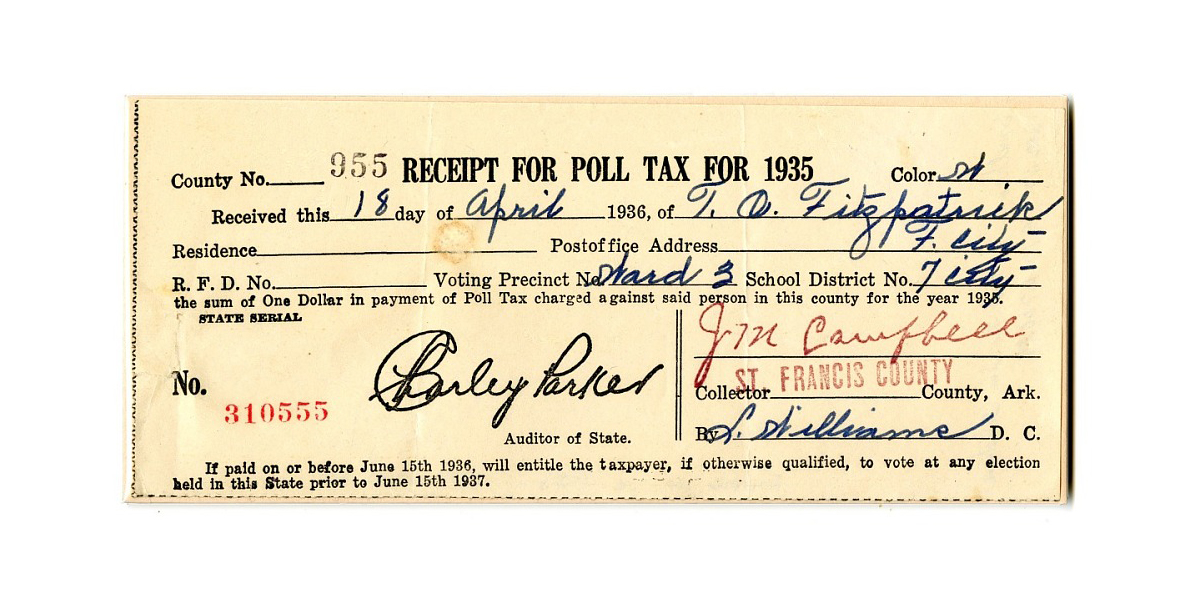 County No. 955 RECEIPT FOR POLL TAX FOR 1935 Color W
Received this 18 day of April 1936, of T. O. Fitzpatrick
Residence Postoffice Address F. City
R. F. D. No. Voting Precinct No Ward 3 School District No. 7 City
the sum of One Dollar in payment of Poll Tax charged against said person in this county for the year 1935.
STATE SERIAL
No. 310555
Charley Parker
Auditor of State.
J M Campbell
ST. FRANCIS COUNTY
Collector County, Ark.
By L. Williams D. C.
If paid on or before June 15th 1936, will entitle the taxpayer, if otherwise qualified, to vote at any election
held in this State prior to June 15th 1937.